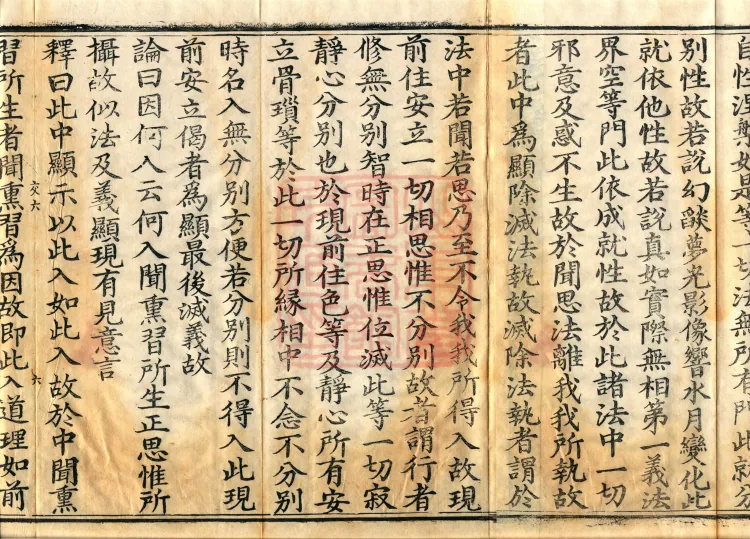 自性涅槃如是等一切法無所有門此就分
別性故若說幻燄夢光影像響水月變化此
就依他性故若說真如實際無相第一義法
界空等門此依成就性故於此諸法中一切
邪意及惑不生故於聞思法離我我所執故
者此中為顯除滅法執故滅除法執者謂於
法中若聞若思乃至不令我我所得入故現
前住安立一切相思惟不分別故者謂行者
修無分別智時在正思惟位滅此等一切寂
靜心分別也於現前住色等及靜心所有安
立骨瑣等於此一切所緣相中不念不分別
時名入無分別方便若分別則不得入此現
前安立偈者為顯最後滅義故
論曰因何入云何入聞熏習所生正思惟所
攝故似法及義顯現有見意言
釋曰此中顯示以此入如此入故於中聞熏
習所生者聞熏習為因故即此入道理如前
交六
六